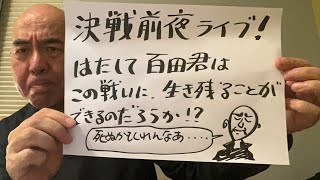 決戦前夜ライブ!
はたして百田君は
この戦いに、生き残ることが
できるのだろうか!?
死ぬかもしれんなあ・・・・